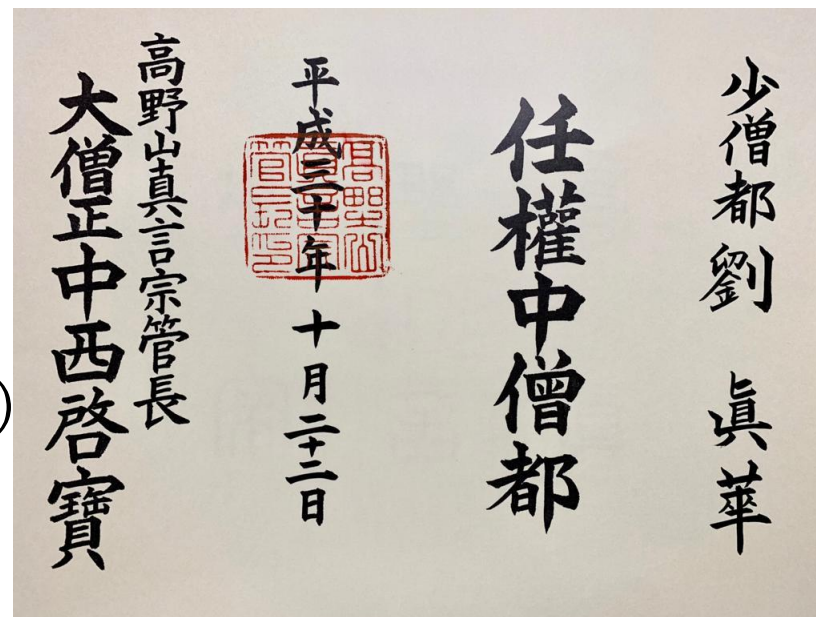 少僧都劉 眞華
任權中僧都
平成三十年十月二十二日
高野山真言宗管長
大僧正中西啓寶
高野山
真言宗
管長印